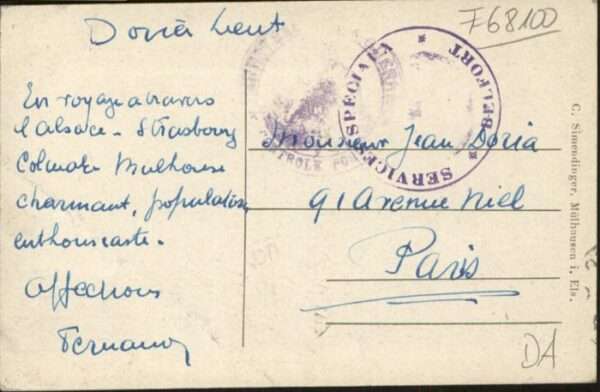 F68100
Doria Lieut
En voyage à travers
l'alsace - Strasbourg
Colmar Mulhouse
charmant, population
enthousiaste.
Affections
Fernand
Monsieur Jean Doria
91 Avenue Niel
Paris
SERVICE SPECIAL
* BELFORT *
CONTROLE
C. Simendinger, Mülhausen i. Els.
DA